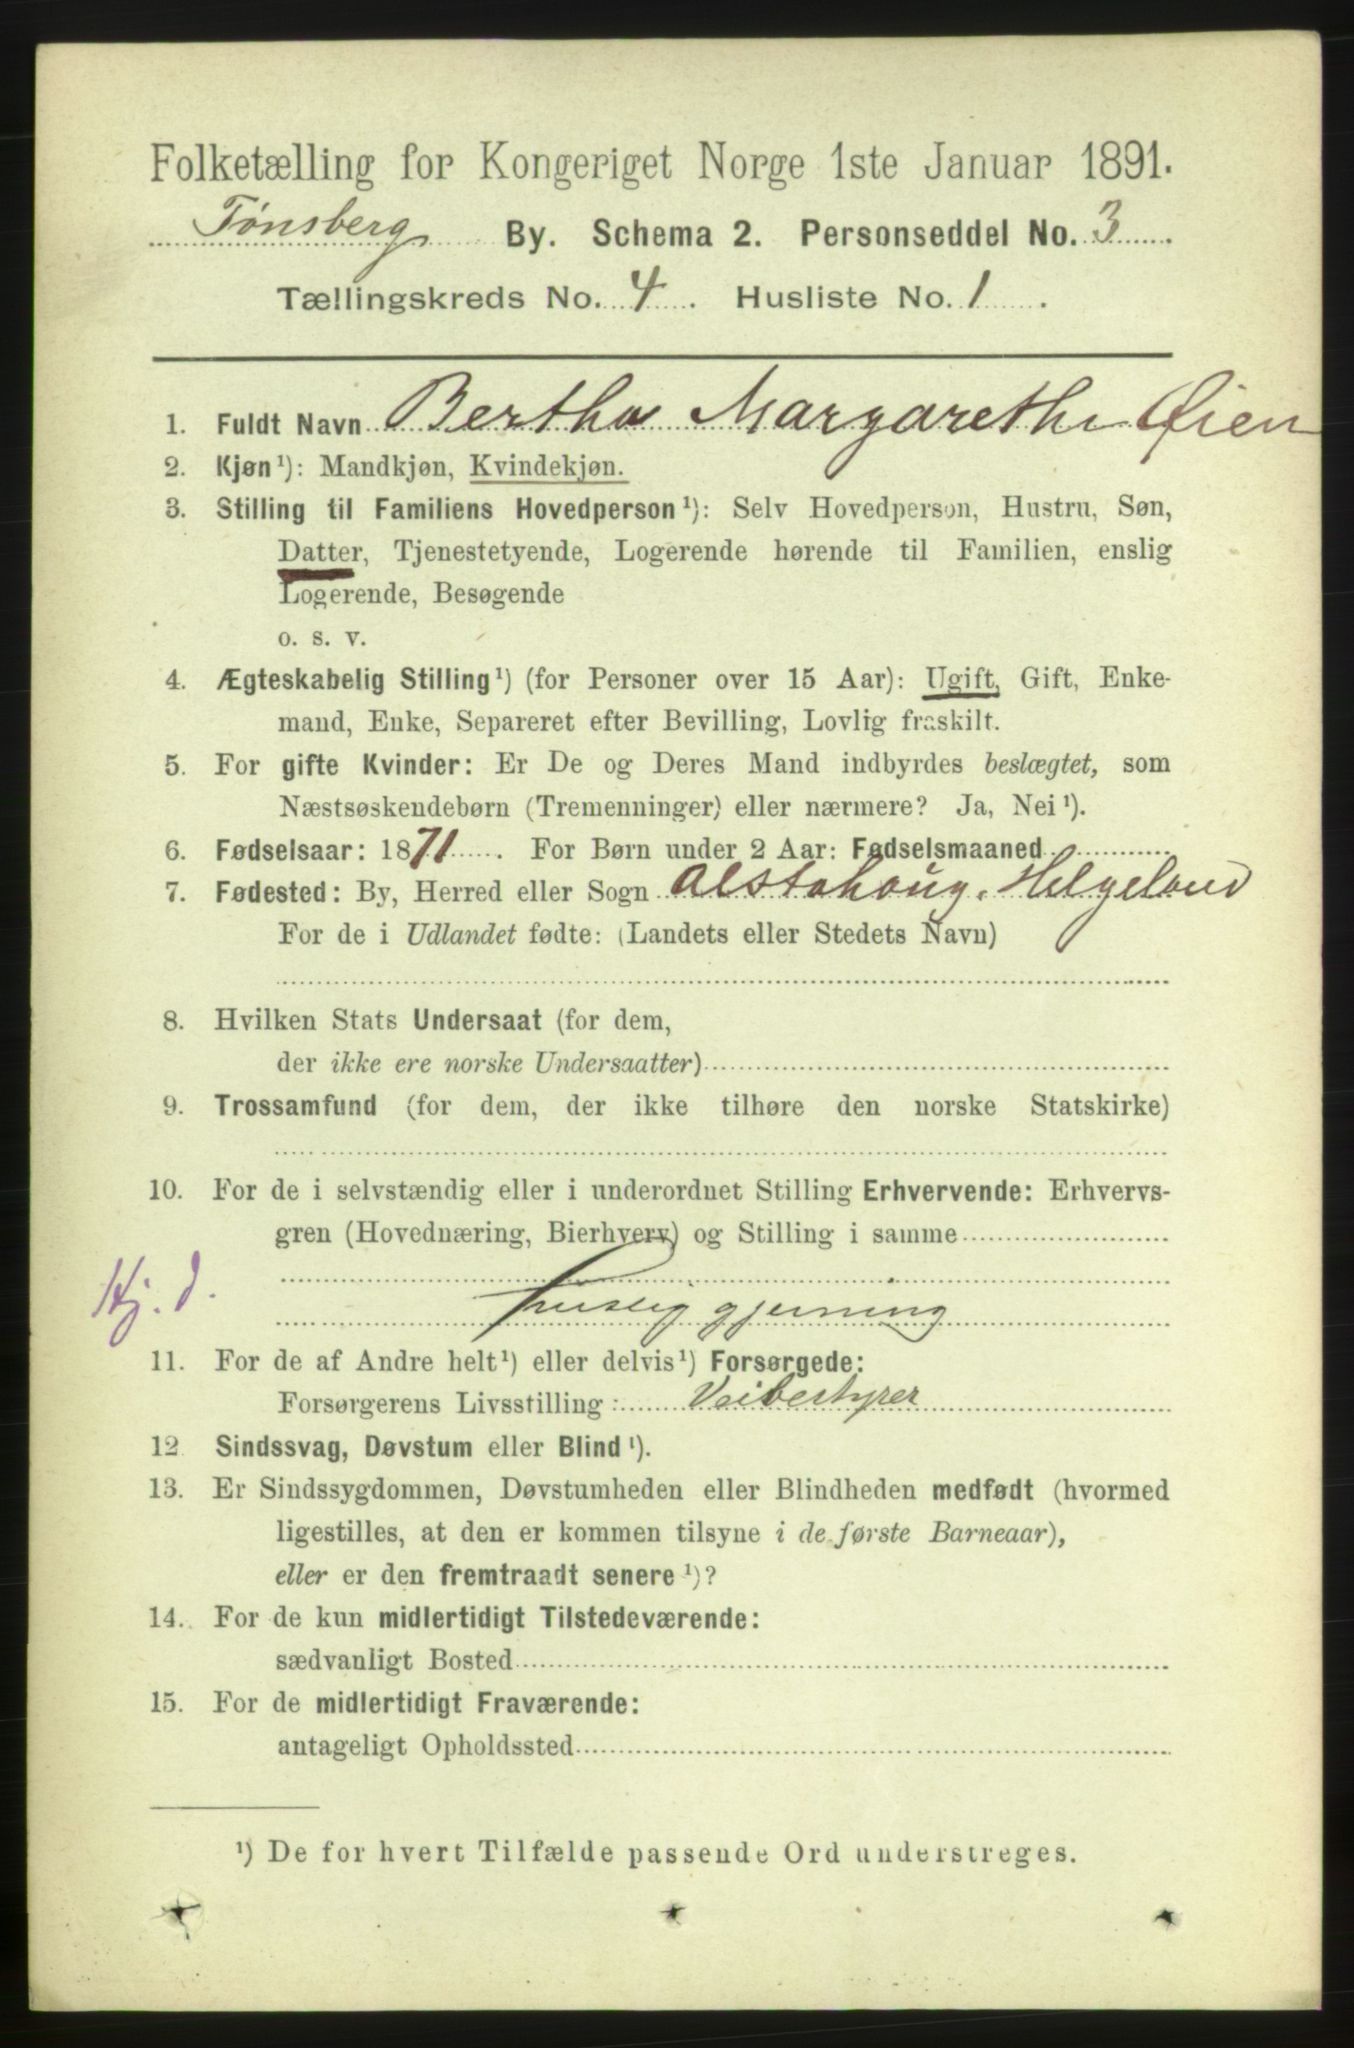 Folketælling for Kongeriget Norge 1ste Januar 1891.
Tønsberg By. Schema 2. Personseddel No. 3
Tællingskreds No. 4. Husliste No. 1.
1. Fuldt Navn Bertha Margarethe Øien
2. Kjøn¹): Mandkjøn, Kvindekjøn.
3. Stilling til Familiens Hovedperson¹): Selv Hovedperson, Hustru, Søn,
Datter, Tjenestetyende, Logerende hørende til Familien, enslig
Logerende, Besøgende
o. s. v.
4. Ægteskabelig Stilling¹) (for Personer over 15 Aar): Ugift, Gift, Enke-
mand, Enke, Separeret efter Bevilling, Lovlig fraskilt.
5. For gifte Kvinder: Er De og Deres Mand indbyrdes beslægtet, som
Næstsøskendebørn (Tremenninger) eller nærmere? Ja, Nei¹).
6. Fødselsaar: 1871. For Børn under 2 Aar: Fødselsmaaned
7. Fødested: By, Herred eller Sogn Alstahoug. Helgeland
For de i Udlandet fødte: (Landets eller Stedets Navn)
8. Hvilken Stats Undersaat (for dem,
der ikke ere norske Undersaatter)
9. Trossamfund (for dem, der ikke tilhøre den norske Statskirke)
10. For de i selvstændig eller i underordnet Stilling Erhvervende: Erhvervs-
gren (Hovednæring, Bierhverv) og Stilling i samme
Hj. d. huslig gjerning
11. For de af Andre helt¹) eller delvis¹) Forsørgede:
Forsørgerens Livsstilling: Veibestyrer
12 Sindssvag, Døvstum eller Blind¹).
13. Er Sindssygdommen, Døvstumheden eller Blindheden medfødt (hvormed
ligestilles, at den er kommen tilsyne i de første Barneaar),
eller er den fremtraadt senere¹)?
14. For de kun midlertidigt Tilstedeværende:
sædvanligt Bosted
15. For de midlertidigt Fraværende:
antageligt Opholdssted
¹) De for hvert Tilfælde passende Ord understreges.